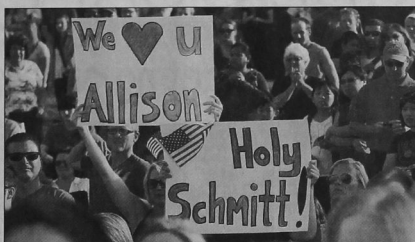 We ♥ u
Allison
Holy
Schmitt!